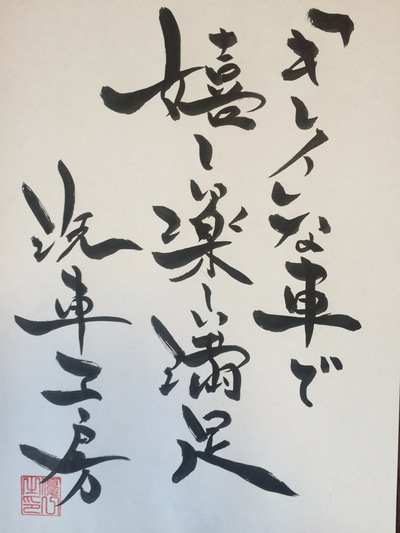 「キレイな車で
嬉しい楽しい満足
洗車工房